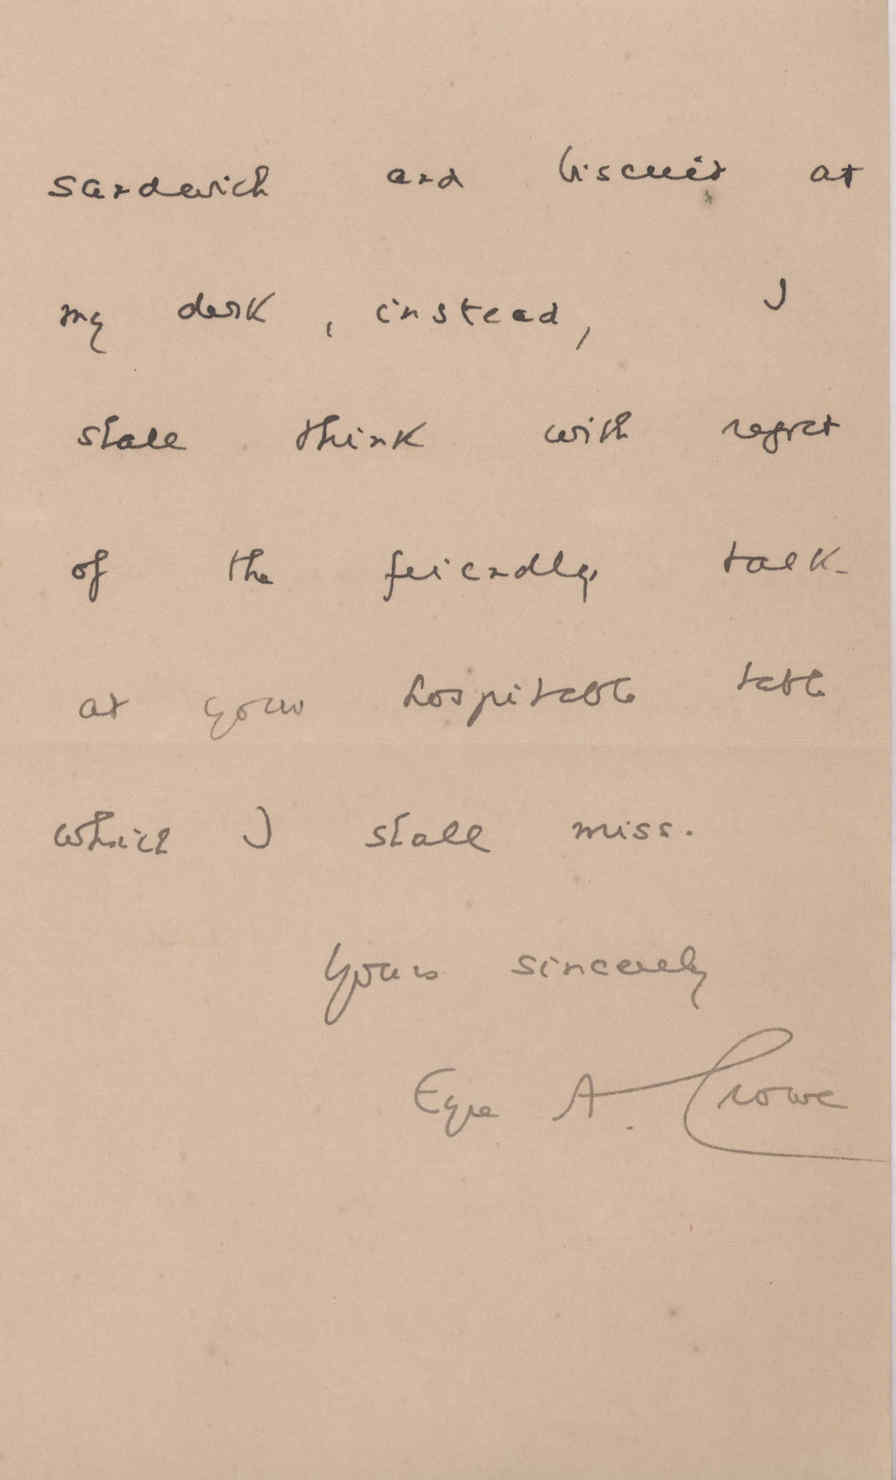 sandwich and biscuit at
my desk, instead, I
shall think with regret
of the friendly talk
at your hospitable table
which I shall miss.
Yours sincerely
Eyre A. Crowe